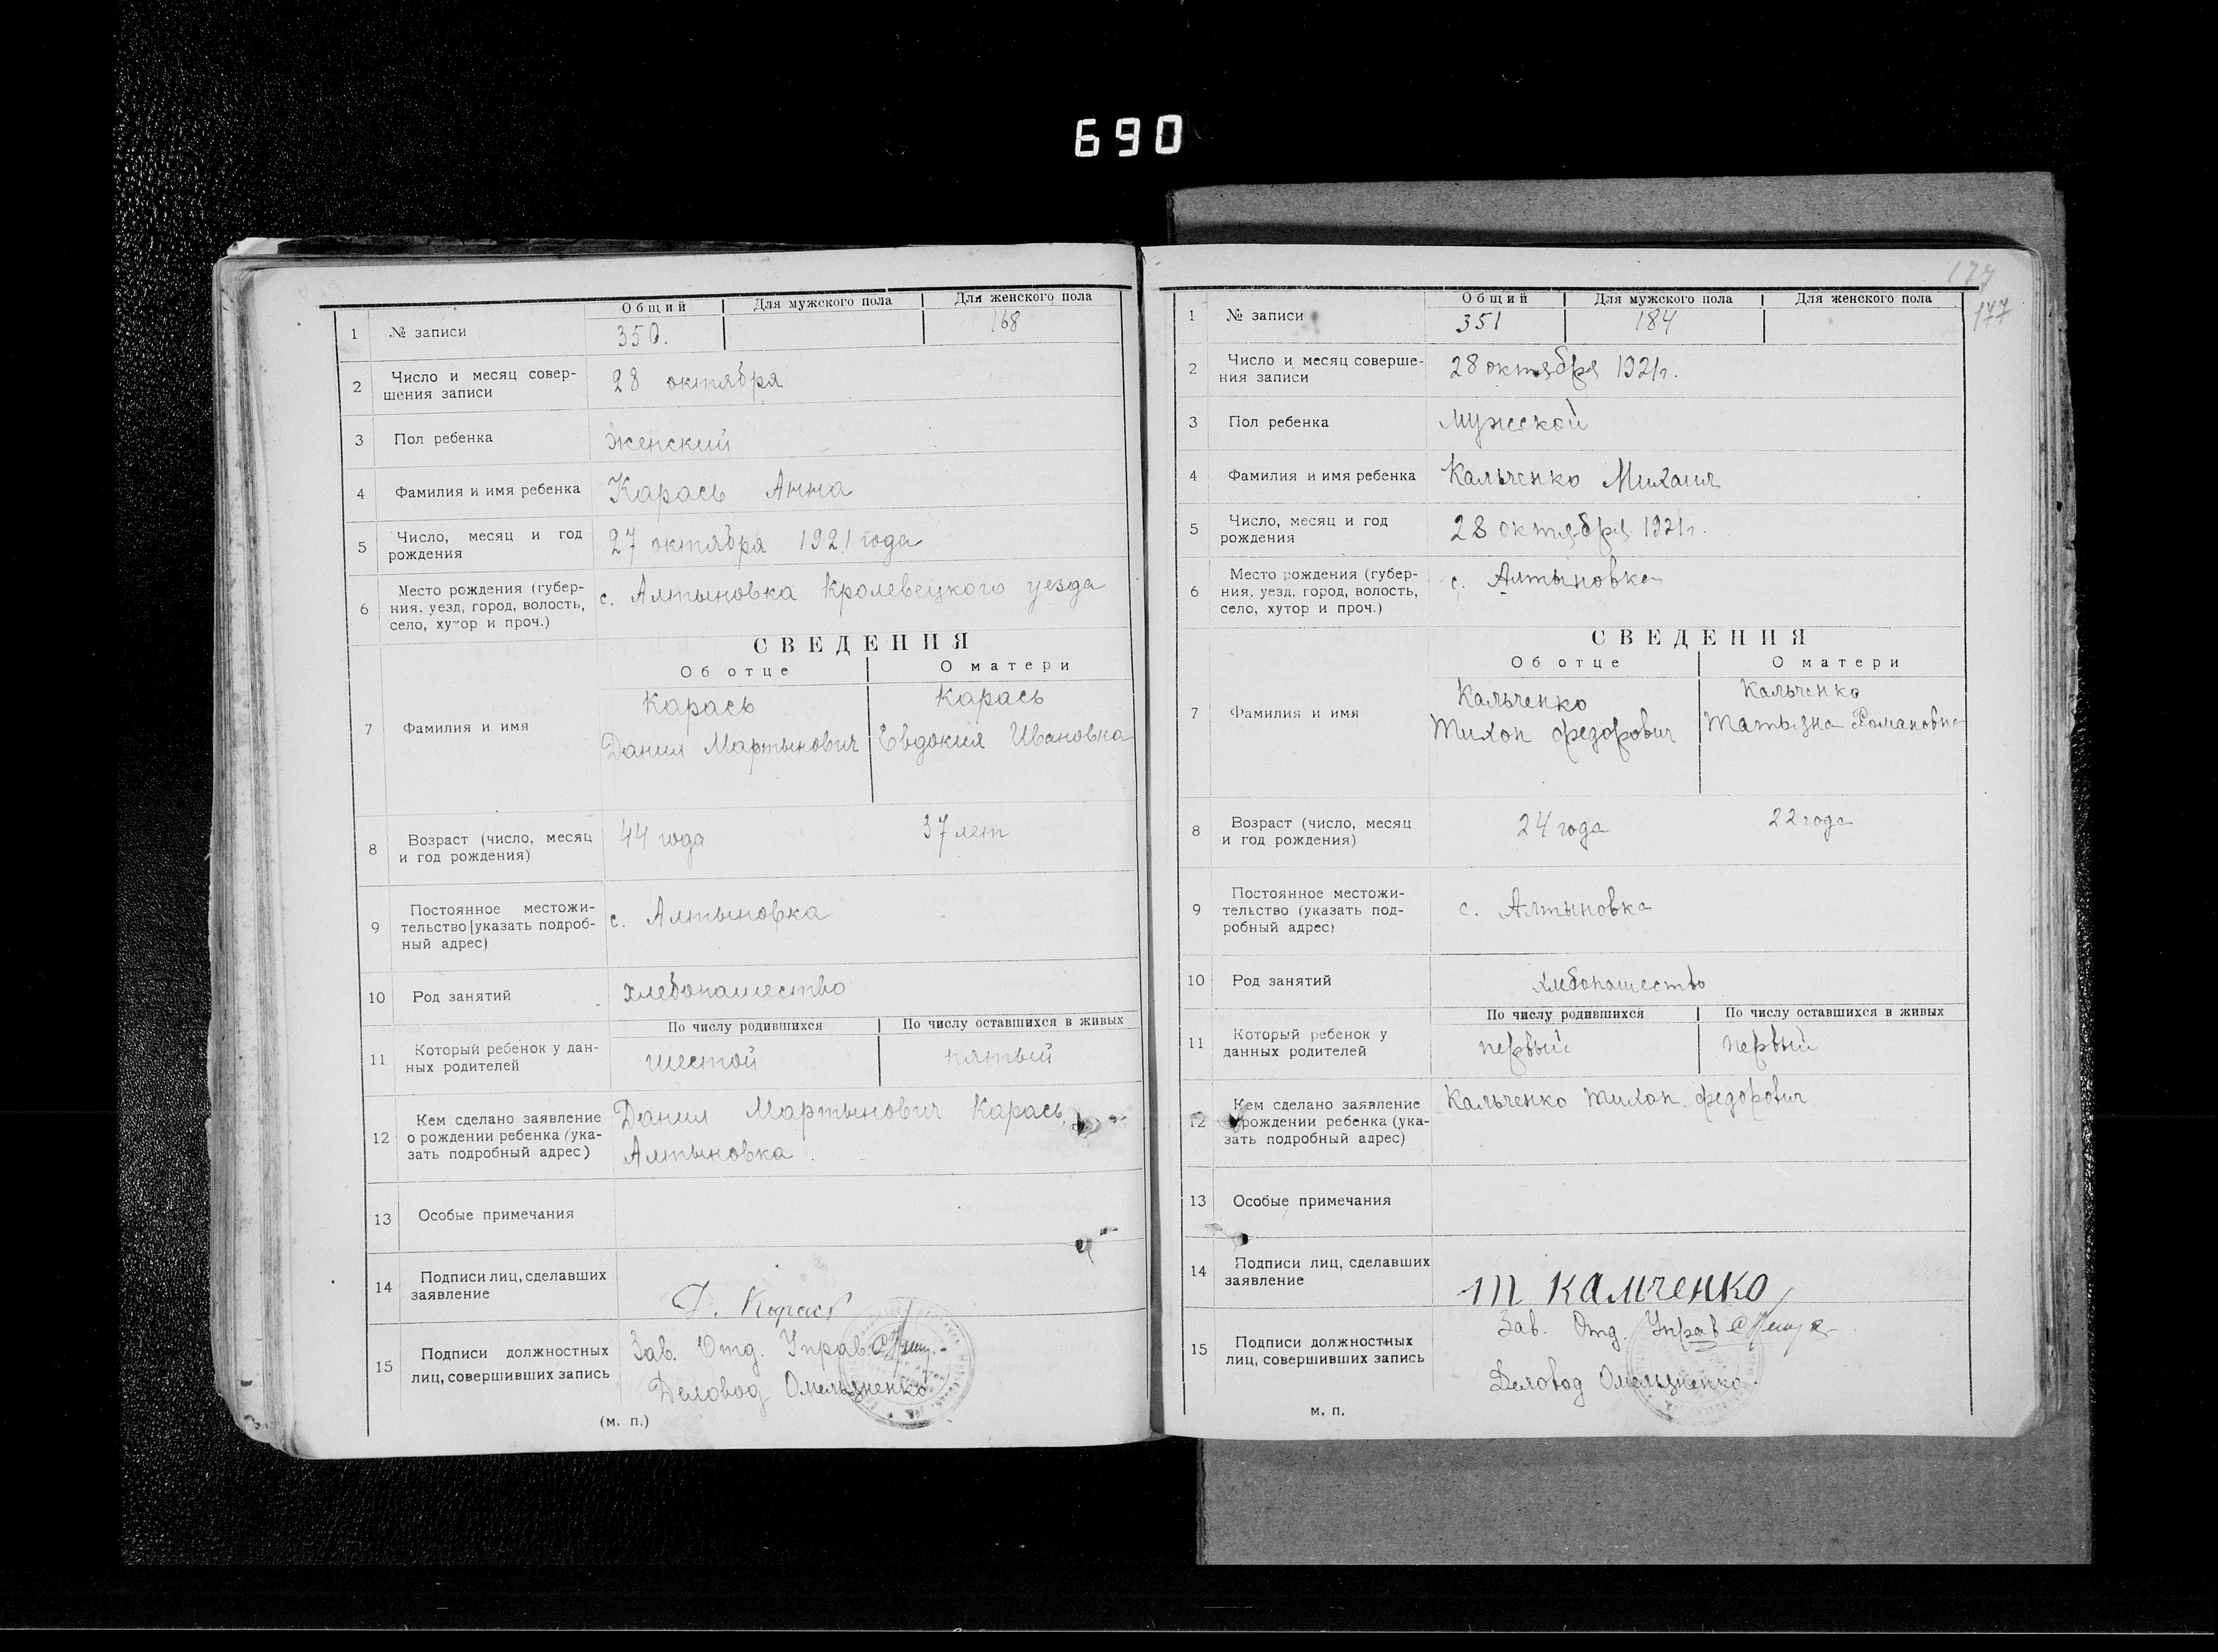 690
Общий Для мужского пола Для женского пола
1 № записи 350. 168
2 Число и месяц совер-
шения записи 28 октября
3 Пол ребенка женский
4 Фамилия и имя ребенка Карась Анна
5 Число, месяц и год
рождения 27 октября 1921 года
6 Место рождения (губер-
ния, уезд, город, волость,
село, хутор и проч.) с. Алтыновка Кролевецкого уезда
СВЕДЕНИЯ
Об отце О матери
7 Фамилия и имя
Карась Карась
Данил Мартынович Евдокия Ивановна
8 Возраст (число, месяц
и год рождения) 44 года 37 лет
9 Постоянное местожи-
тельство [указать подроб-
ный адрес) с. Алтыновка
10 Род занятий хлебопашество
По числу родившихся По числу оставшихся в живых
11 Который ребенок у дан-
ных родителей шестой пятый
12 Кем сделано заявление
о рождении ребенка (ука-
зать подробный адрес)
Данил Мартынович Карась,
Алтыновка.
13 Особые примечания
14 Подписи лиц, сделавших
заявление Д. Карась
15 Подписи должностных
лиц, совершивших запись
Зав. Отд. Управ.
Деловод Омельяненко
(м. п.)
177
177
Общий Для мужского пола Для женского пола
1 № записи 351 184
2 Число и месяц соверше-
ния записи 28 октября 1921г.
3 Пол ребенка Мужской
4 Фамилия и имя ребенка Кальченко Михаил
5 Число, месяц и год
рождения 28 октября 1921г.
6 Место рождения (губер-
ния, уезд, город, волость,
село, хутор и проч.) с. Алтыновка
СВЕДЕНИЯ
Об отце О матери
7 Фамилия и имя
Кальченко Кальченко
Тихон Федорович Татьяна Романовна
8 Возраст (число, месяц
и год рождения) 24 года 22 года
9 Постоянное местожи-
тельство (указать под-
робный адрес) с. Алтыновка
10 Род занятий хлебопашество
По числу родившихся По числу оставшихся в живых
11 Который ребенок у
данных родителей первый первый
12 Кем сделано заявление
о рождении ребенка (ука-
зать подробный адрес) Кальченко Тихон Федорович
13 Особые примечания
14 Подписи лиц, сделавших
заявление Т Калченко
15 Подписи должностных
лиц, совершивших запись
Зав. Отд. Управ
Деловод Омельяненко.
м. п.